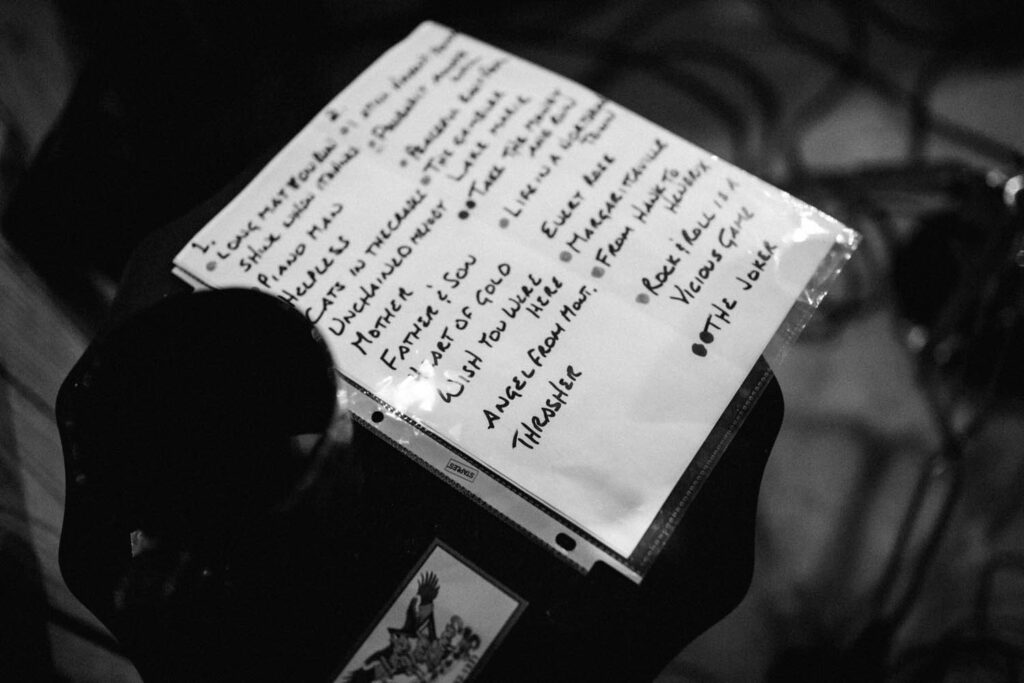 1.
LONG MAY YOU RUN
SHINE WHEN ITRAINS
PIANO MAN
HELPLESS
CATS IN THECRADLE
UNCHAINED MELODY
MOTHER
FATHER & SON
HEART OF GOLD
WISH YOU WERE
HERE
ANGEL FROM MONT.
THRASHER
2.
PEACEFUL EASY FEEL
THE GAMBLER
LAKE MARIE
TAKE THE MONEY
AND RUN
LIFE IN A NORTHERN
TOWN
EVERY ROSE
MARGARITAVILLE
FROM HANK TO
HENDRIX
ROCK & ROLL IS A
VICIOUS GAME
THE JOKER
STAPLES